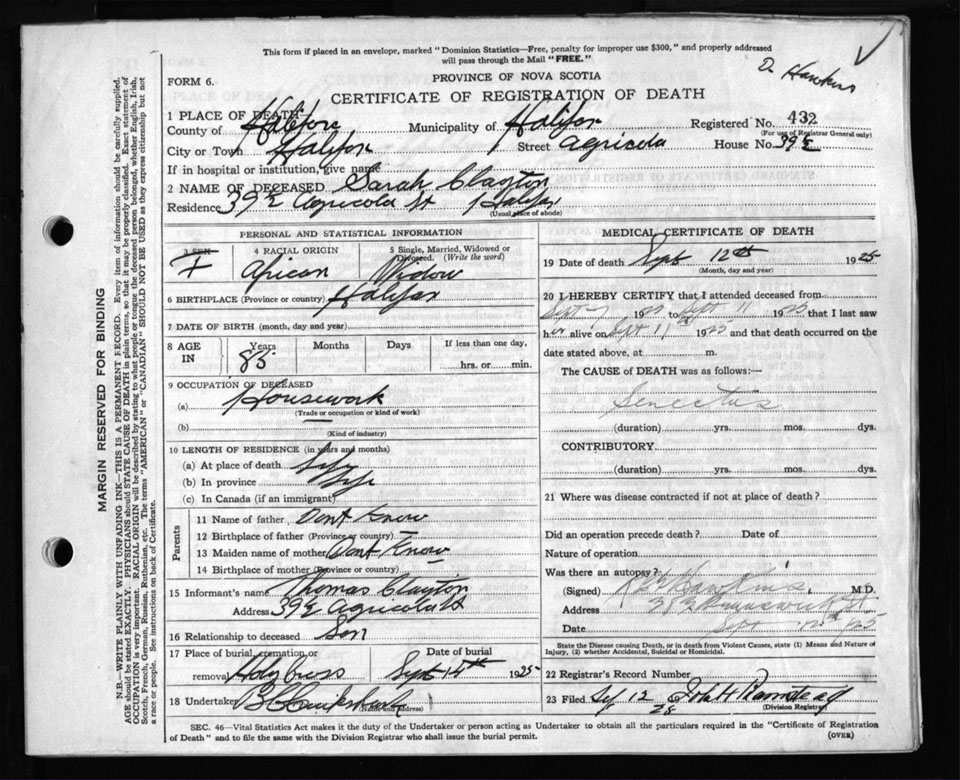 This form if placed in an envelope, marked "Dominion Statistics—Free, penalty for improper use $300," and properly addressed
will pass through the Mail "FREE."
D. Hawkins
FORM 6.
PROVINCE OF NOVA SCOTIA
CERTIFICATE OF REGISTRATION OF DEATH
1 PLACE OF DEATH
County of Halifax Municipality of Halifax Registered No. 432
(For use of Registrar General only)
City or Town Halifax Street Agricola House No. 39½
If in hospital or institution, give name
2 NAME OF DECEASED Sarah Clayton
Residence 39½ Agricola St Halifax
(Usual place of abode)
PERSONAL AND STATISTICAL INFORMATION
3 SEX 4 RACIAL ORIGIN 5 Single, Married, Widowed or Divorced. (Write the word)
F African Widow
6 BIRTHPLACE (Province or country) Halifax
7 DATE OF BIRTH (month, day and year)
8 AGE IN Years Months Days If less than one day,
85 hrs. or min.
9 OCCUPATION OF DECEASED
(a) Housework
(Trade or occupation or kind of work)
(b)
(Kind of industry)
10 LENGTH OF RESIDENCE (in years and months)
(a) At place of death Life
(b) In province Life
(c) In Canada (if an immigrant)
Parents
11 Name of father Dont Know
12 Birthplace of father (Province or country)
13 Maiden name of mother Dont Know
14 Birthplace of mother (Province or country)
15 Informant's name Thomas Clayton
Address 39½ Agricola St
16 Relationship to deceased Son
17 Place of burial, cremation or Date of burial
removal Holy Cross Sept 14th 1925
18 Undertaker
(Name and address)
MEDICAL CERTIFICATE OF DEATH
19 Date of death Sept 12th 1925
(Month, day and year)
20 I HEREBY CERTIFY that I attended deceased from
Sept 1925 to Sept 11 1925 that I last saw
her alive on Sept 11th 1925 and that death occurred on the
date stated above, at m.
The CAUSE of DEATH was as follows:—
Senectus
(duration) yrs. mos. dys.
CONTRIBUTORY.
(duration) yrs. mos. dys.
21 Where was disease contracted if not at place of death?
Did an operation precede death? Date of
Nature of operation
Was there an autopsy?
(Signed) Hawkins M.D.
Address Brunswick St
Date Sept 12th 25
State the Disease causing Death, or in death from Violent Causes, state (1) Means and Nature of
Injury, (2) whether Accidental, Suicidal or Homicidal.
22 Registrar's Record Number
23 Filed Sep 12 25 John H Ramstead
(Division Registrar)
SEC. 46—Vital Statistics Act makes it the duty of the Undertaker or person acting as Undertaker to obtain all the particulars required in the "Certificate of Registration
of Death" and to file the same with the Division Registrar who shall issue the burial permit.
(OVER)
MARGIN RESERVED FOR BINDING
N.B.—WRITE PLAINLY WITH UNFADING INK—THIS IS A PERMANENT RECORD. Every item of information should be carefully supplied.
AGE should be stated EXACTLY. PHYSICIANS should STATE CAUSE OF DEATH in plain terms, so that it may be properly classified. Exact statement of
OCCUPATION is very important. RACIAL ORIGIN will be described by stating to what people or tongue the deceased person belonged, whether English, Irish,
Scotch, French, German, Russian, Ruthenian, etc. The terms "AMERICAN" or "CANADIAN" SHOULD NOT BE USED as they express citizenship but not
a race or people. See instructions on back of Certificate.